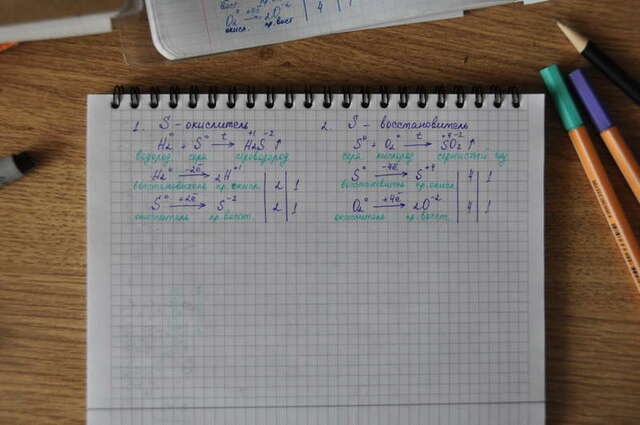 O₂⁰ +4ē→ 2O⁻² 4
окисл. пр.вост
1. S - окислитель
H₂⁰ + S⁰ t→ H₂⁺¹S⁻² ↑
водород сера сероводород
H₂⁰ -2ē→ 2H⁺¹ 2 1
восстановитель пр.окисл.
S⁰ +2ē→ S⁻² 2 1
окислитель пр.восст.
2. S - восстановитель
S⁰ + O₂⁰ t→ S⁺⁴O₂⁻² ↑
сера кислород сернистый газ
S⁰ -4ē→ S⁺⁴ 4 1
восстановитель пр.окисл
O₂⁰ +4ē→ 2O⁻² 4 1
окислитель пр.восст.